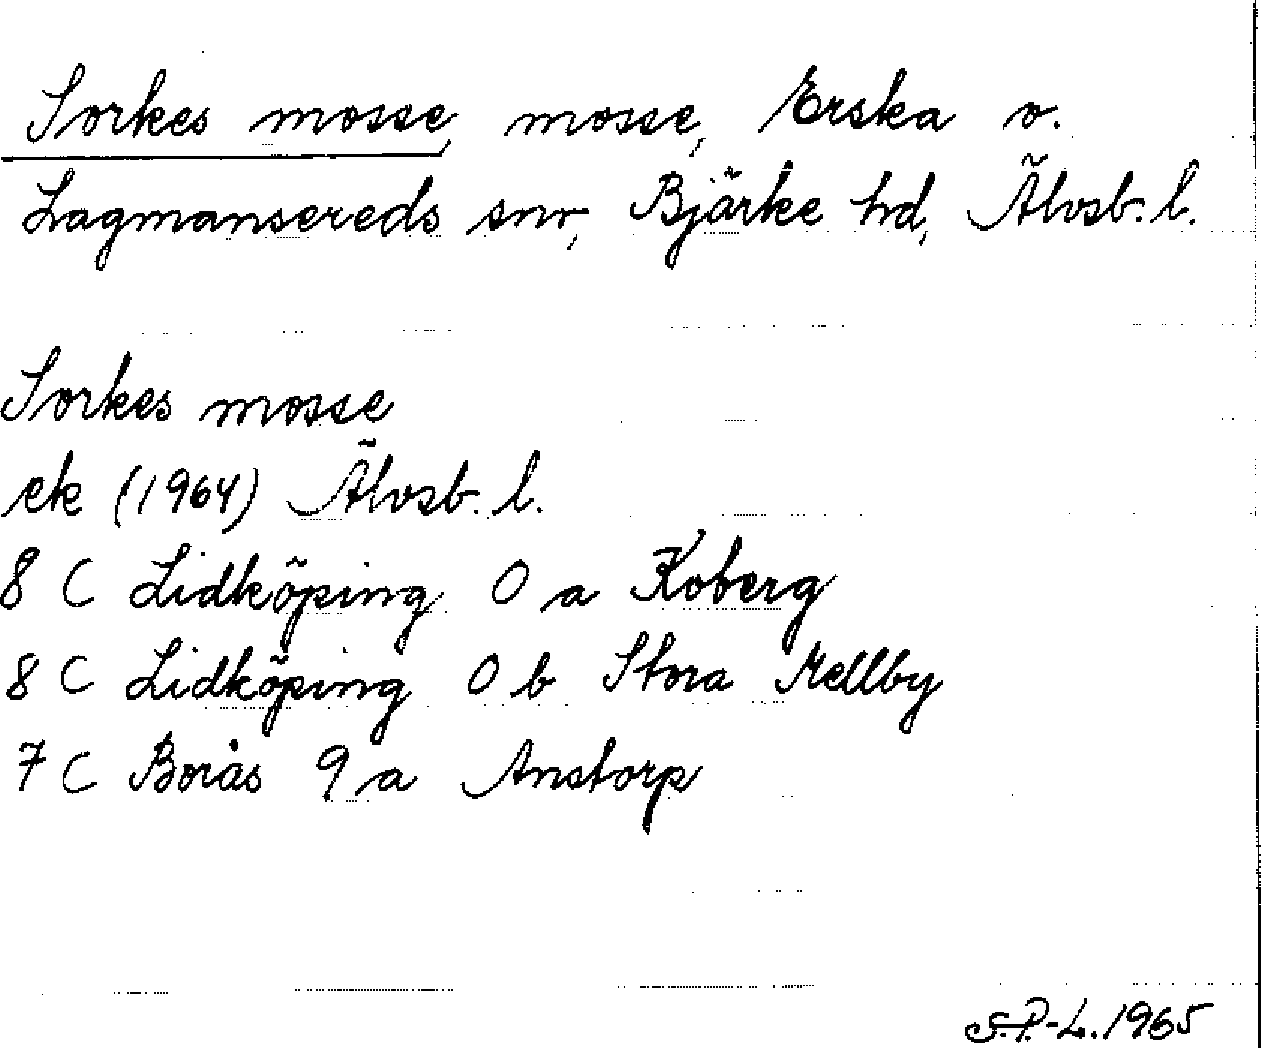 Sorkes mosse, mosse, Erska o.
Lagmansereds snr, Bjärke hd, Älvsb. l.
Sorkes mosse
ek (1964) Älvsb. l.
8 C Lidköping 0 a Koberg
8 C Lidköping 0 b Stora Mellby
7 C Borås 9 a Anstorp
S.P.-L. 1965